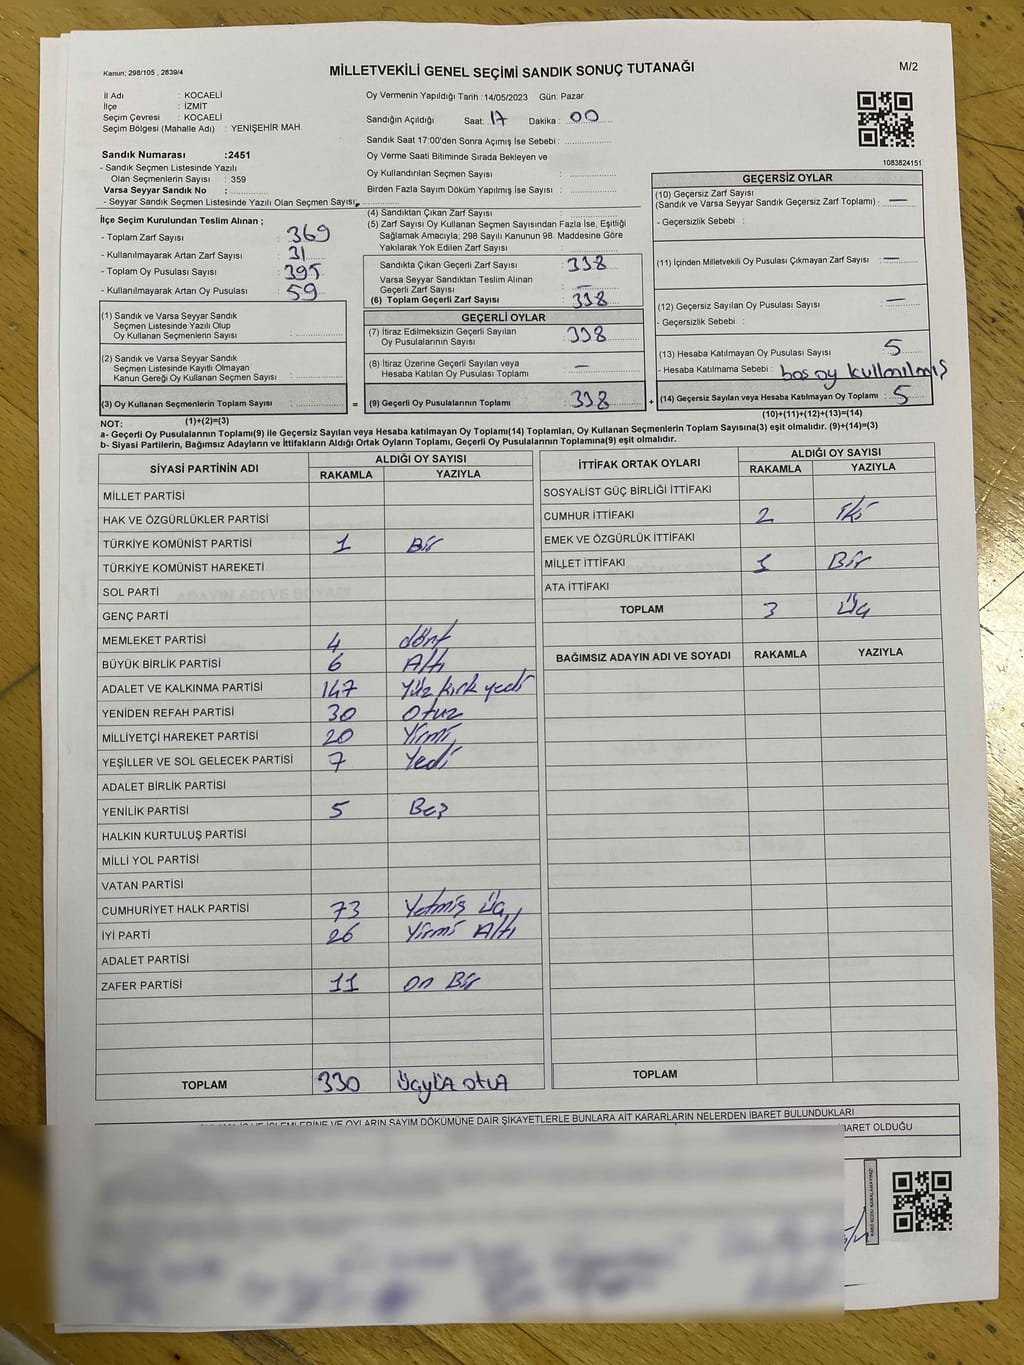 Kanun; 298/105 , 2839/4
MİLLETVEKİLİ GENEL SEÇİMİ SANDIK SONUÇ TUTANAĞI
M/2
İl Adı : KOCAELİ
İlçe : İZMİT
Seçim Çevresi : KOCAELİ
Seçim Bölgesi (Mahalle Adı) : YENİŞEHİR MAH.
Sandık Numarası :2451
- Sandık Seçmen Listesinde Yazılı
Olan Seçmenlerin Sayısı : 359
Varsa Seyyar Sandık No :
- Seyyar Sandık Seçmen Listesinde Yazılı Olan Seçmen Sayısı
Oy Vermenin Yapıldığı Tarih :14/05/2023 Gün: Pazar
Sandığın Açıldığı Saat: 17 Dakika : 00
Sandık Saat 17:00'den Sonra Açımış İse Sebebi :
Oy Verme Saati Bitiminde Sırada Bekleyen ve
Oy Kullandırılan Seçmen Sayısı :
Birden Fazla Sayım Döküm Yapılmış İse Sayısı :
1083824151
İlçe Seçim Kurulundan Teslim Alınan ;
- Toplam Zarf Sayısı : 369
- Kullanılmayarak Artan Zarf Sayısı : 31
- Toplam Oy Pusulası Sayısı : 395
- Kullanılmayarak Artan Oy Pusulası : 59
(1) Sandık ve Varsa Seyyar Sandık
Seçmen Listesinde Yazılı Olup
Oy Kullanan Seçmenlerin Sayısı :
(2) Sandık ve Varsa Seyyar Sandık
Seçmen Listesinde Kayıtlı Olmayan
Kanun Gereği Oy Kullanan Seçmen Sayısı :
(3) Oy Kullanan Seçmenlerin Toplam Sayısı :
=
(1)+(2)=(3)
(4) Sandıktan Çıkan Zarf Sayısı :
(5) Zarf Sayısı Oy Kullanan Seçmen Sayısından Fazla İse, Eşitliği
Sağlamak Amacıyla; 298 Sayılı Kanunun 98. Maddesine Göre
Yakılarak Yok Edilen Zarf Sayısı :
Sandıkta Çıkan Geçerli Zarf Sayısı : 338
Varsa Seyyar Sandıktan Teslim Alınan
Geçerli Zarf Sayısı : —
(6) Toplam Geçerli Zarf Sayısı : 338
GEÇERLİ OYLAR
(7) İtiraz Edilmeksizin Geçerli Sayılan
Oy Pusulalarının Sayısı : 338
(8) İtiraz Üzerine Geçerli Sayılan veya
Hesaba Katılan Oy Pusulası Toplamı : —
(9) Geçerli Oy Pusulalarının Toplamı : 338
+
GEÇERSİZ OYLAR
(10) Geçersiz Zarf Sayısı
(Sandık ve Varsa Seyyar Sandık Geçersiz Zarf Toplamı) : —
- Geçersizlik Sebebi :
(11) İçinden Milletvekili Oy Pusulası Çıkmayan Zarf Sayısı : —
(12) Geçersiz Sayılan Oy Pusulası Sayısı : —
- Geçersizlik Sebebi :
(13) Hesaba Katılmayan Oy Pusulası Sayısı : 5
- Hesaba Katılmama Sebebi : boş oy kullnılmış
(14) Geçersiz Sayılan veya Hesaba Katılmayan Oy Toplamı : 5
(10)+(11)+(12)+(13)=(14)
NOT:
a- Geçerli Oy Pusulalarının Toplamı(9) ile Geçersiz Sayılan veya Hesaba katılmayan Oy Toplamı(14) Toplamları, Oy Kullanan Seçmenlerin Toplam Sayısına(3) eşit olmalıdır. (9)+(14)=(3)
b- Siyasi Partilerin, Bağımsız Adayların ve İttifakların Aldığı Ortak Oyların Toplamı, Geçerli Oy Pusulalarının Toplamına(9) eşit olmalıdır.
SİYASİ PARTİNİN ADI ALDIĞI OY SAYISI
RAKAMLA YAZIYLA
MİLLET PARTİSİ
HAK VE ÖZGÜRLÜKLER PARTİSİ
TÜRKİYE KOMÜNİST PARTİSİ 1 Bir
TÜRKİYE KOMÜNİST HAREKETİ
SOL PARTİ
GENÇ PARTİ
MEMLEKET PARTİSİ 4 dört
BÜYÜK BİRLİK PARTİSİ 6 Altı
ADALET VE KALKINMA PARTİSİ 147 Yüz kırk yedi
YENİDEN REFAH PARTİSİ 30 otuz
MİLLİYETÇİ HAREKET PARTİSİ 20 Yirmi
YEŞİLLER VE SOL GELECEK PARTİSİ 7 Yedi
ADALET BİRLİK PARTİSİ
YENİLİK PARTİSİ 5 Beş
HALKIN KURTULUŞ PARTİSİ
MİLLİ YOL PARTİSİ
VATAN PARTİSİ
CUMHURİYET HALK PARTİSİ 73 Yetmiş üç
İYİ PARTİ 26 Yirmi Altı
ADALET PARTİSİ
ZAFER PARTİSİ 11 on Bir
TOPLAM 330 üçyüz otuz
İTTİFAK ORTAK OYLARI ALDIĞI OY SAYISI
RAKAMLA YAZIYLA
SOSYALİST GÜÇ BİRLİĞİ İTTİFAKI
CUMHUR İTTİFAKI 2 İki
EMEK VE ÖZGÜRLÜK İTTİFAKI
MİLLET İTTİFAKI 1 Bir
ATA İTTİFAKI
TOPLAM 3 üç
BAĞIMSIZ ADAYIN ADI VE SOYADI RAKAMLA YAZIYLA
TOPLAM
İŞLEMLERİNE VE OYLARIN SAYIM DÖKÜMÜNE DAİR ŞİKAYETLERLE BUNLARA AİT KARARLARIN NELERDEN İBARET BULUNDUKLARI
İBARET OLDUĞU